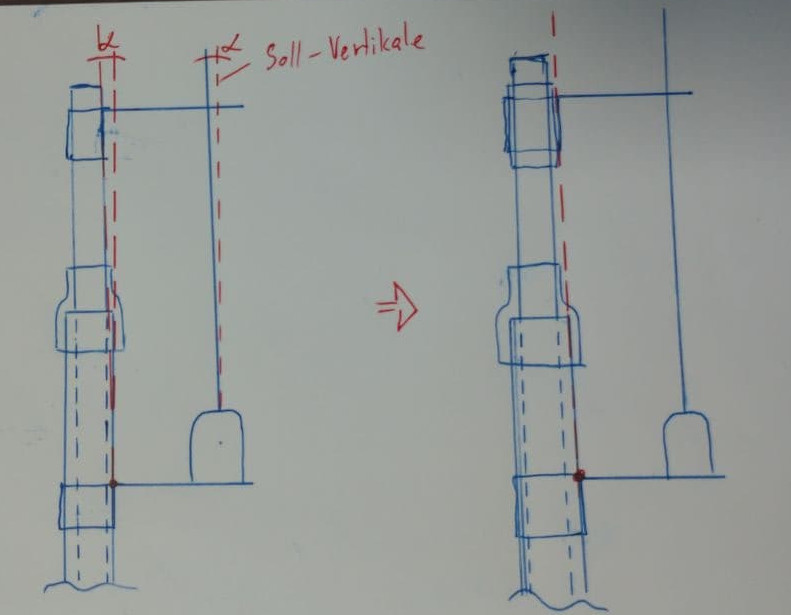 α α
Soll-Vertikale